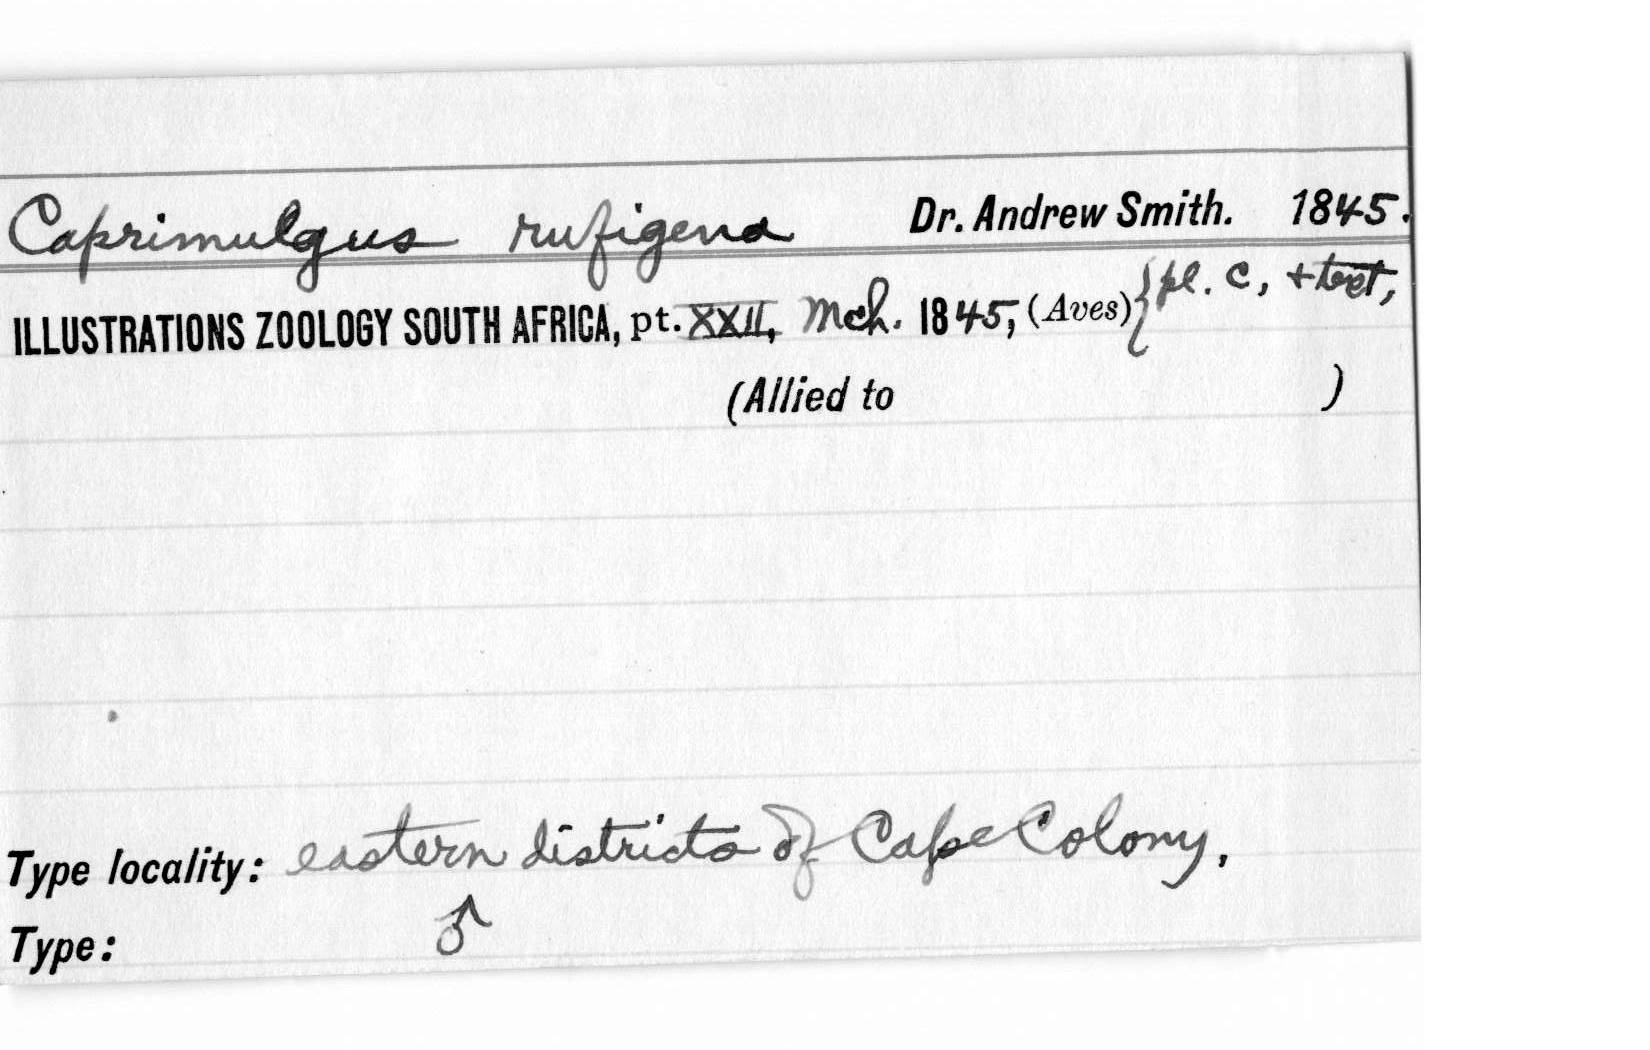 Caprimulgus rufigena Dr. Andrew Smith. 1845.
ILLUSTRATIONS ZOOLOGY SOUTH AFRICA, pt. XXII, Mch. 1845, (Aves) { pl. c, + text,
(Allied to )
Type locality: eastern districts of Cape Colony,
Type: ♂